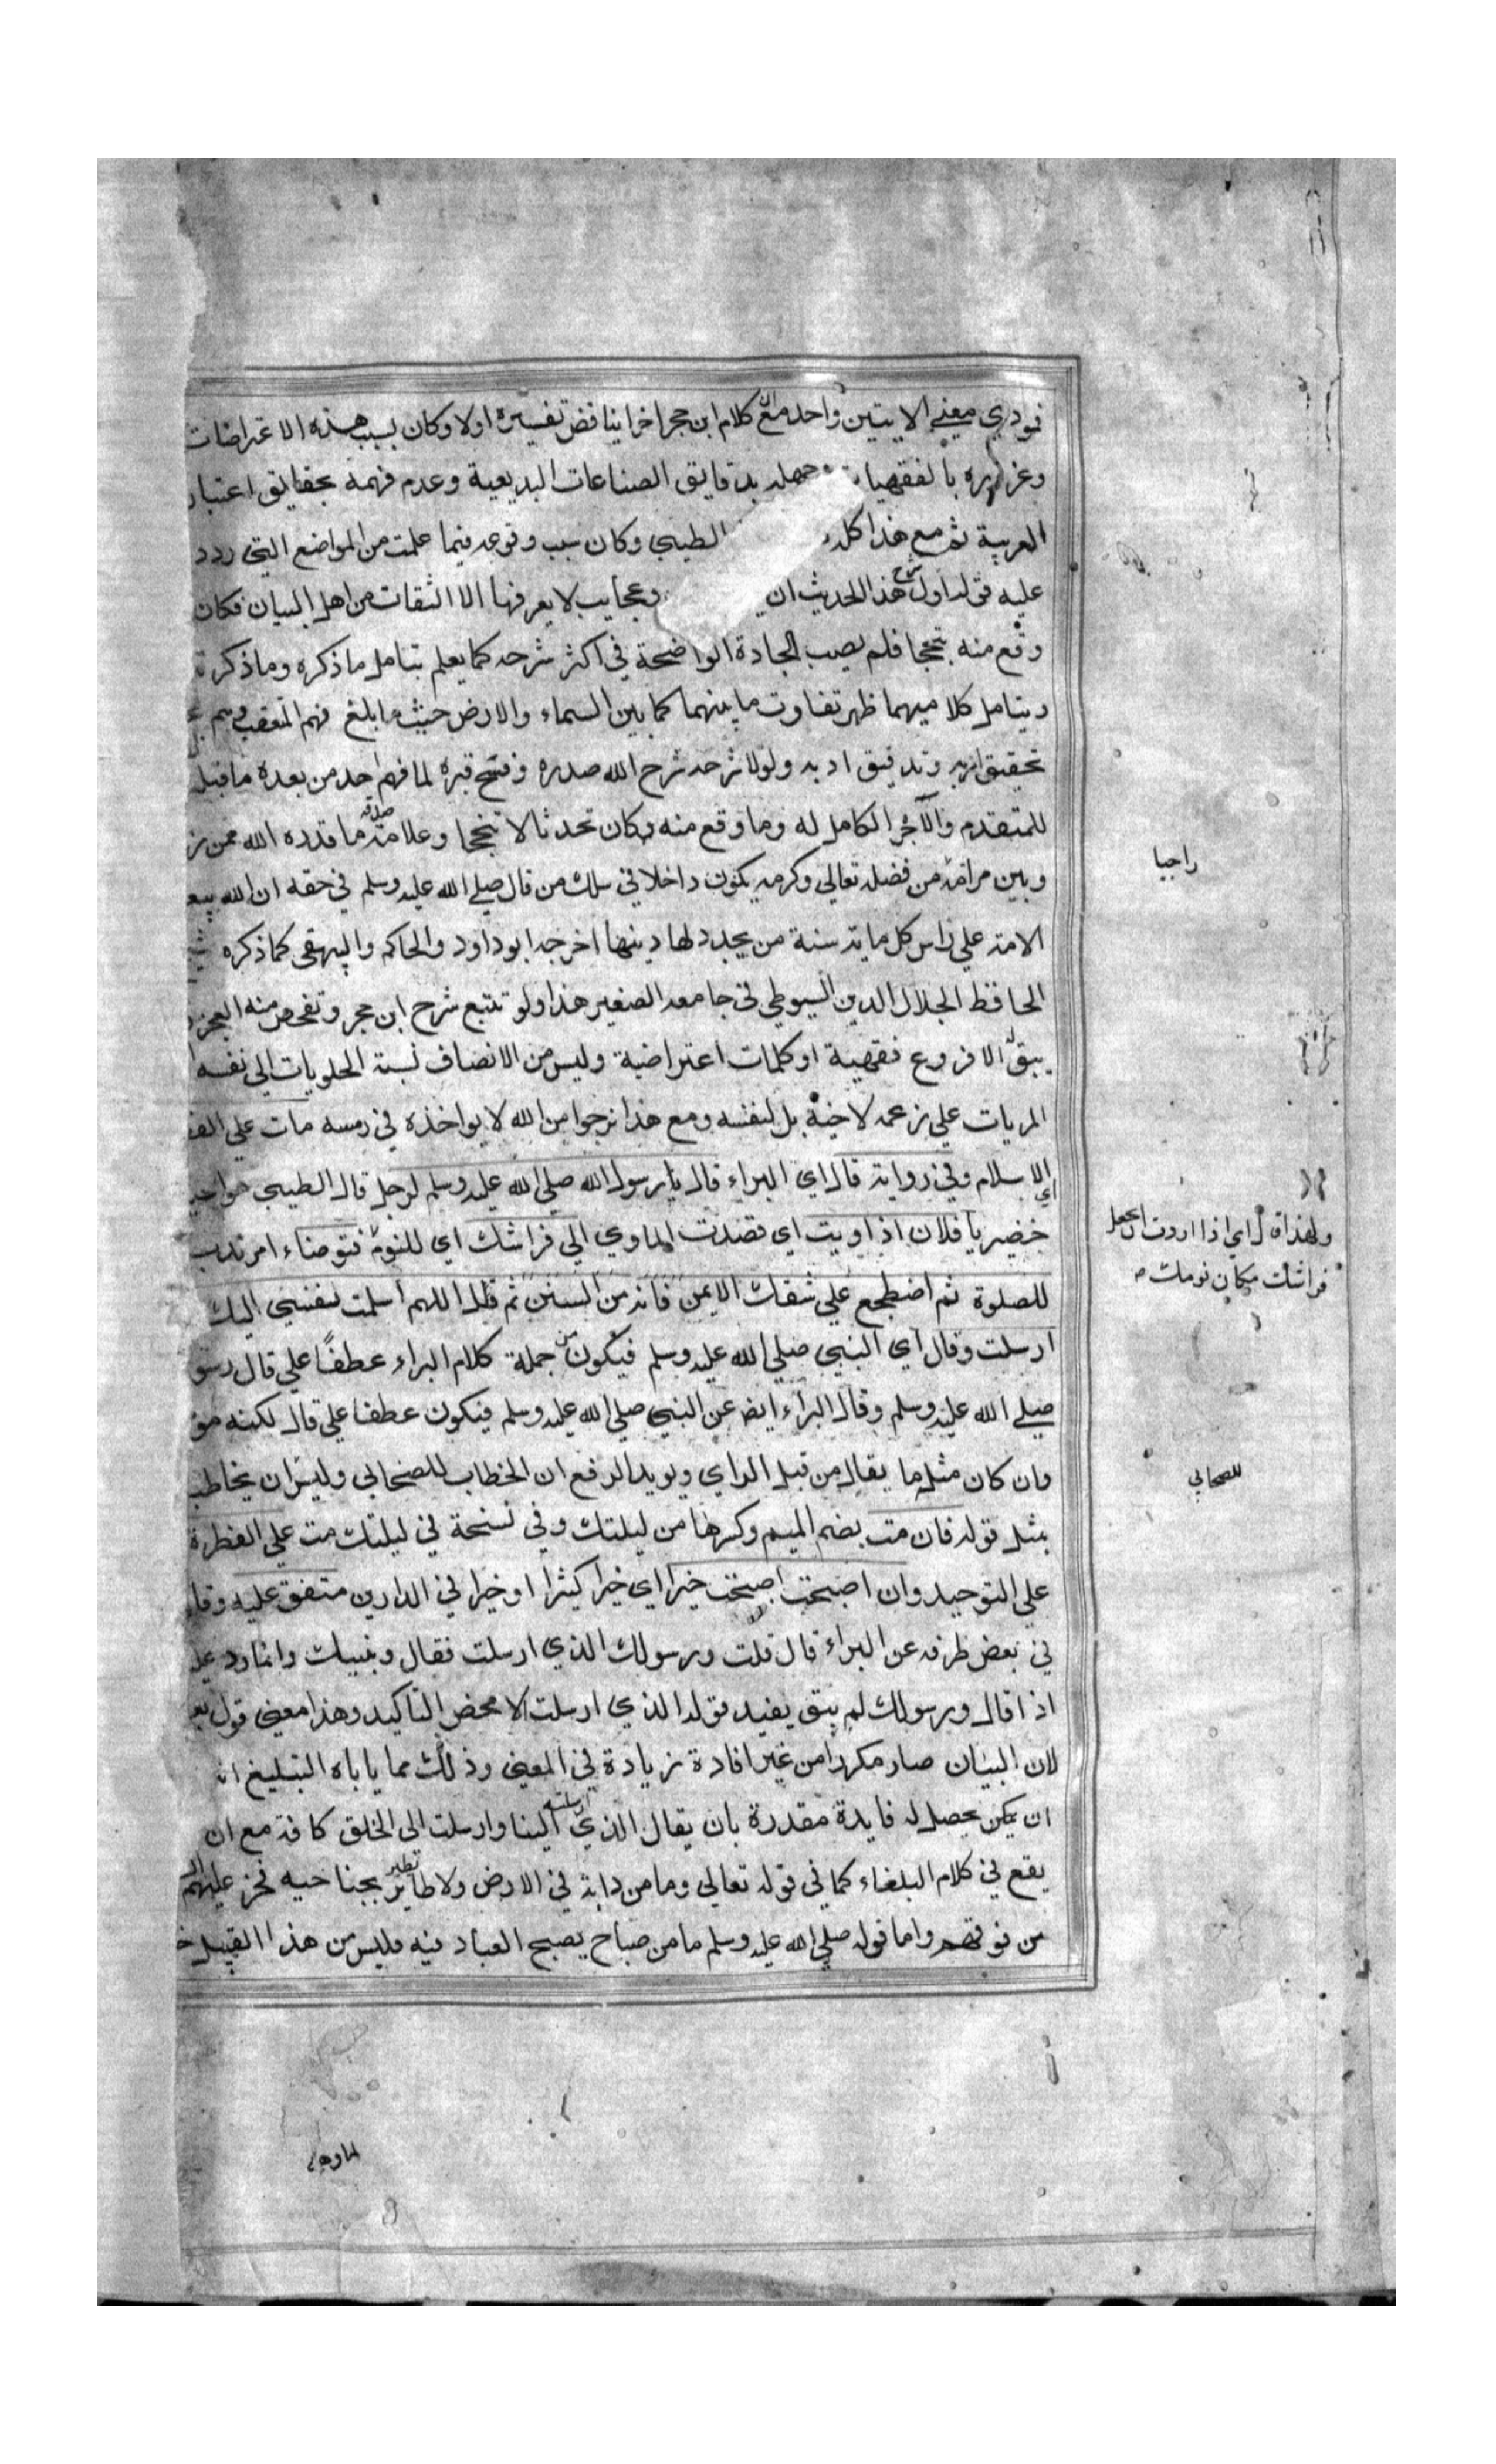 فمودي معني الايتين واحد مع ان كلام ابن حجر اخرا يناقض تفسيره اولا وكان بسبب هذه الاعتراضات
وغروره بالفقهيات وجهله بدقايق الصناعات البديعية وعدم فهمه بحقايق اعتبار
العربية ثم مع هذا كله الطيبي وكان سبب وقوعه فيما علمت من المواضع التي رددت
عليه قوله اول شرح هذا الحديث ان وعجايب لا يعرفها الا الثقات من اهل البيان فكان
وقع منه تبجحا فلم يصب الجادة الواضحة في اكثر شرحه كما يعلم بتامل ما ذكره وما ذكرته
ويتامل كلاميهما ظهر تفاوت ما بينهما كما بين السماء والارض حيث ما ابلغ فهم المتعقب
تحقيق اربه وتدقيق ادبه ولولا شرحه شرح الله صدره وفتح قبره لما فهم احد من بعده ما قبل
للمتقدم والاجر الكامل له وما وقع منه فكان تحدثا لا تبجحا وعلامة صلاته ما قدره الله ممن
وبين مرامه من فضله تعالي وكرمه يكون داخلا في سلك من قال صلي الله عليه وسلم في حقه ان الله يبعث
الامة علي راس كل ماية سنة من يجدد لها دينها اخرجه ابو داود والحاكم والبيهقي كما ذكره
الحافظ الجلال الدين السيوطي في جامعه الصغير هذا ولو تتبع شرح ابن حجر وتفحص منه
يبق الا فروع فقهية او كلمات اعتراضية وليس من الانصاف نسبة الحلويات الي نفسه
المريات علي زعمه لاخيه بل لنفسه ومع هذا نرجوا من الله لا يواخذه في رمسه مات علي الفطرة
اي الاسلام وفي رواية قال اي البراء قال يا رسول الله صلي الله عليه وسلم لرجل قال الطيبي هو اسيد
خضير يا فلان اذا اويت اي قصدت الماوي الي فراشك اي للنوم فتوضاء امر ندب
للصلوة ثم اضطجع علي شقك الايمن فانه من السنن ثم قل اللهم اسلمت نفسي اليك
ارسلت وقال اي النبي صلي الله عليه وسلم فيكون من جملة كلام البراء عطفا علي قال رسول
صلي الله عليه وسلم وقال البراء ايضا عن النبي صلي الله عليه وسلم فيكون عطفا علي قال لكنه موقوف
وان كان مثله ما يقال من قبل الراي ويويد الرفع ان الخطاب للصحابي وليس ان يخاطب
بمثل قوله فان مت بضم الميم وكسرها من ليلتك وفي نسخة في ليلتك مت علي الفطرة
علي التوحيد وان اصبحت اصبت خيرا اي خيرا كثيرا او خيرا في الدارين متفق عليه وقا
في بعض طرقه عن البراء قال قلت ورسولك الذي ارسلت فقال ونبيك وانما رد عليه
اذا قال ورسولك لم يبق يفيد قوله الذي ارسلت الا محض التاكيد وهذا معني قول بعضهم
لان البيان صار مكررا من غير افادة زيادة في المعني وذلك مما ياباه التبليغ
ان يكن يحصل له فايدة مقدرة بان يقال الذي ارسلته الينا وارسلت الي الخلق كافة مع ان
يقع في كلام البلغاء كما في قوله تعالي وما من دابة في الارض ولا طاير يطير بجناحيه فخر عليهم السقف
من فوقهم واما قوله صلي الله عليه وسلم ما من صباح يصبح العباد فيه فليس من هذا القبيل
راجيا
ولهذا قال اي اذا اردت ان تجعل
فراشك مكان نومك
للصحابي